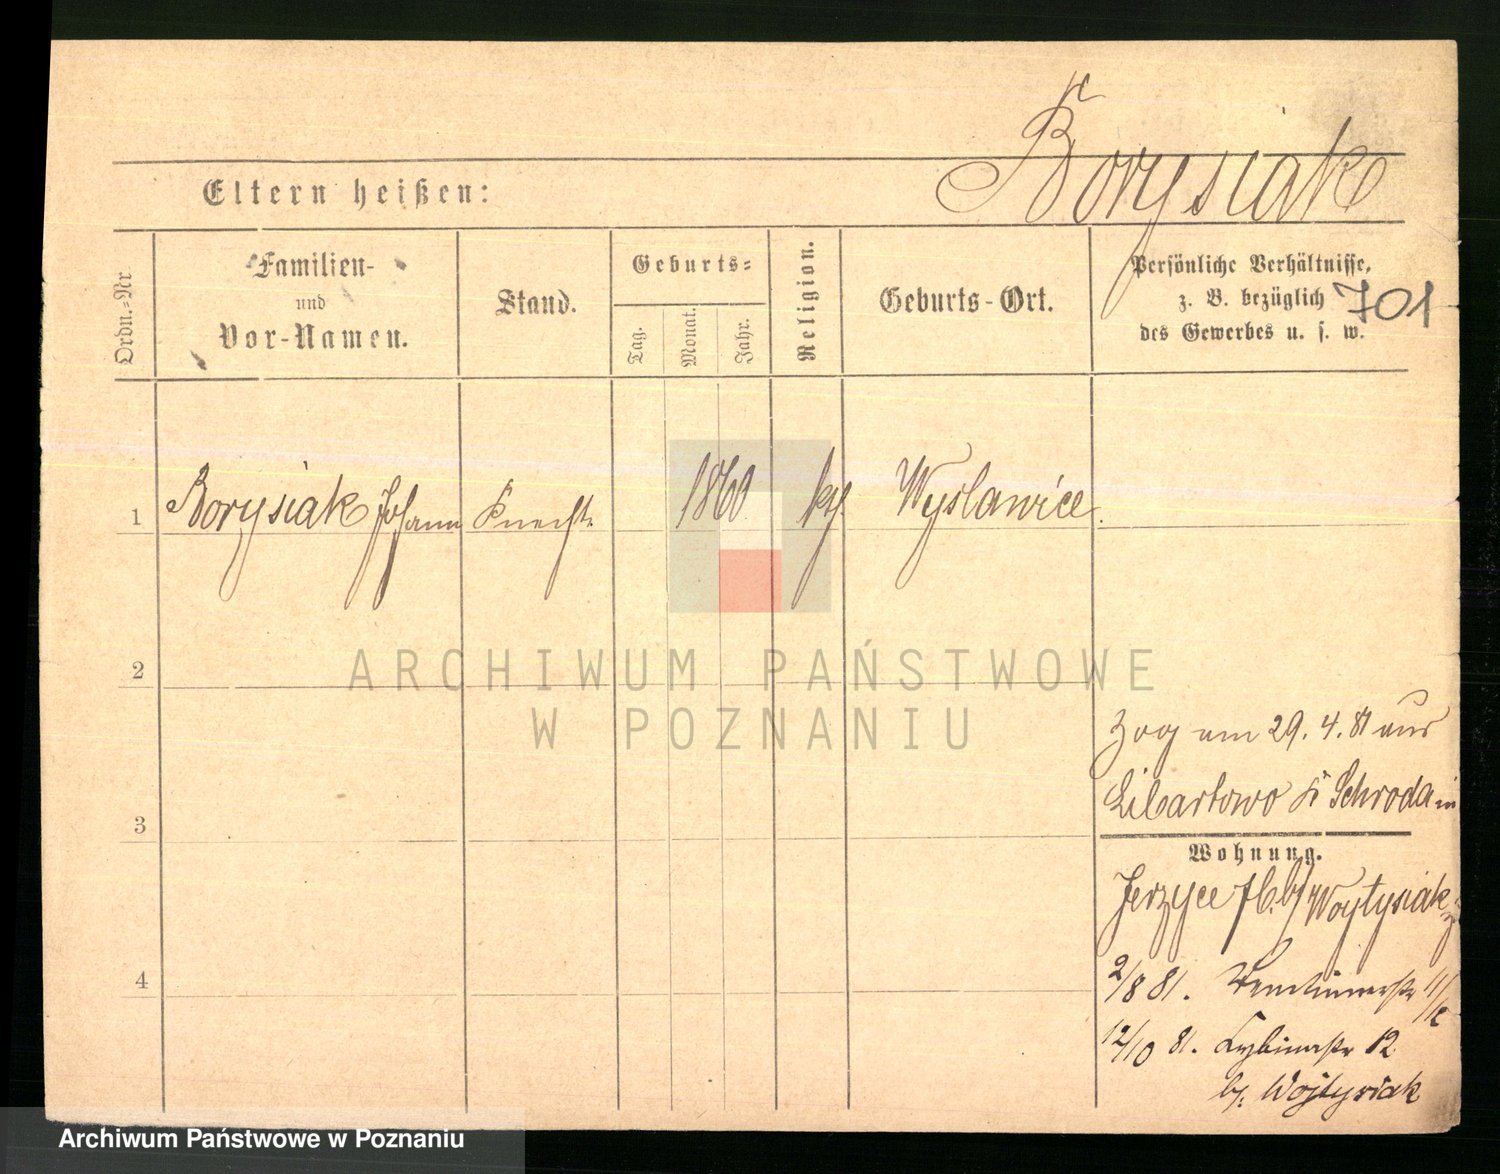 Borysiak
Eltern heißen:
701
Ordn.=Nr.
Familien-
und
Vor-Namen.
Stand.
Geburts=
Tag.
Monat.
Jahr.
Religion.
Geburts-Ort.
Persönliche Verhältnisse,
z. B. bezüglich
des Gewerbes u. s. w.
1 Borysiak Johann Knecht 1860 kth Wyslawice
2
3
4
Zog am 29. 4. 81 aus
Libartowo Kr Schroda in
Wohnung.
Jerzyce bei Woytysiak
2/8 81.
12/10 81. Lybinastr 12
b. Wojtysiak
ARCHIWUM PAŃSTWOWE
W POZNANIU
Archiwum Państwowe w Poznaniu